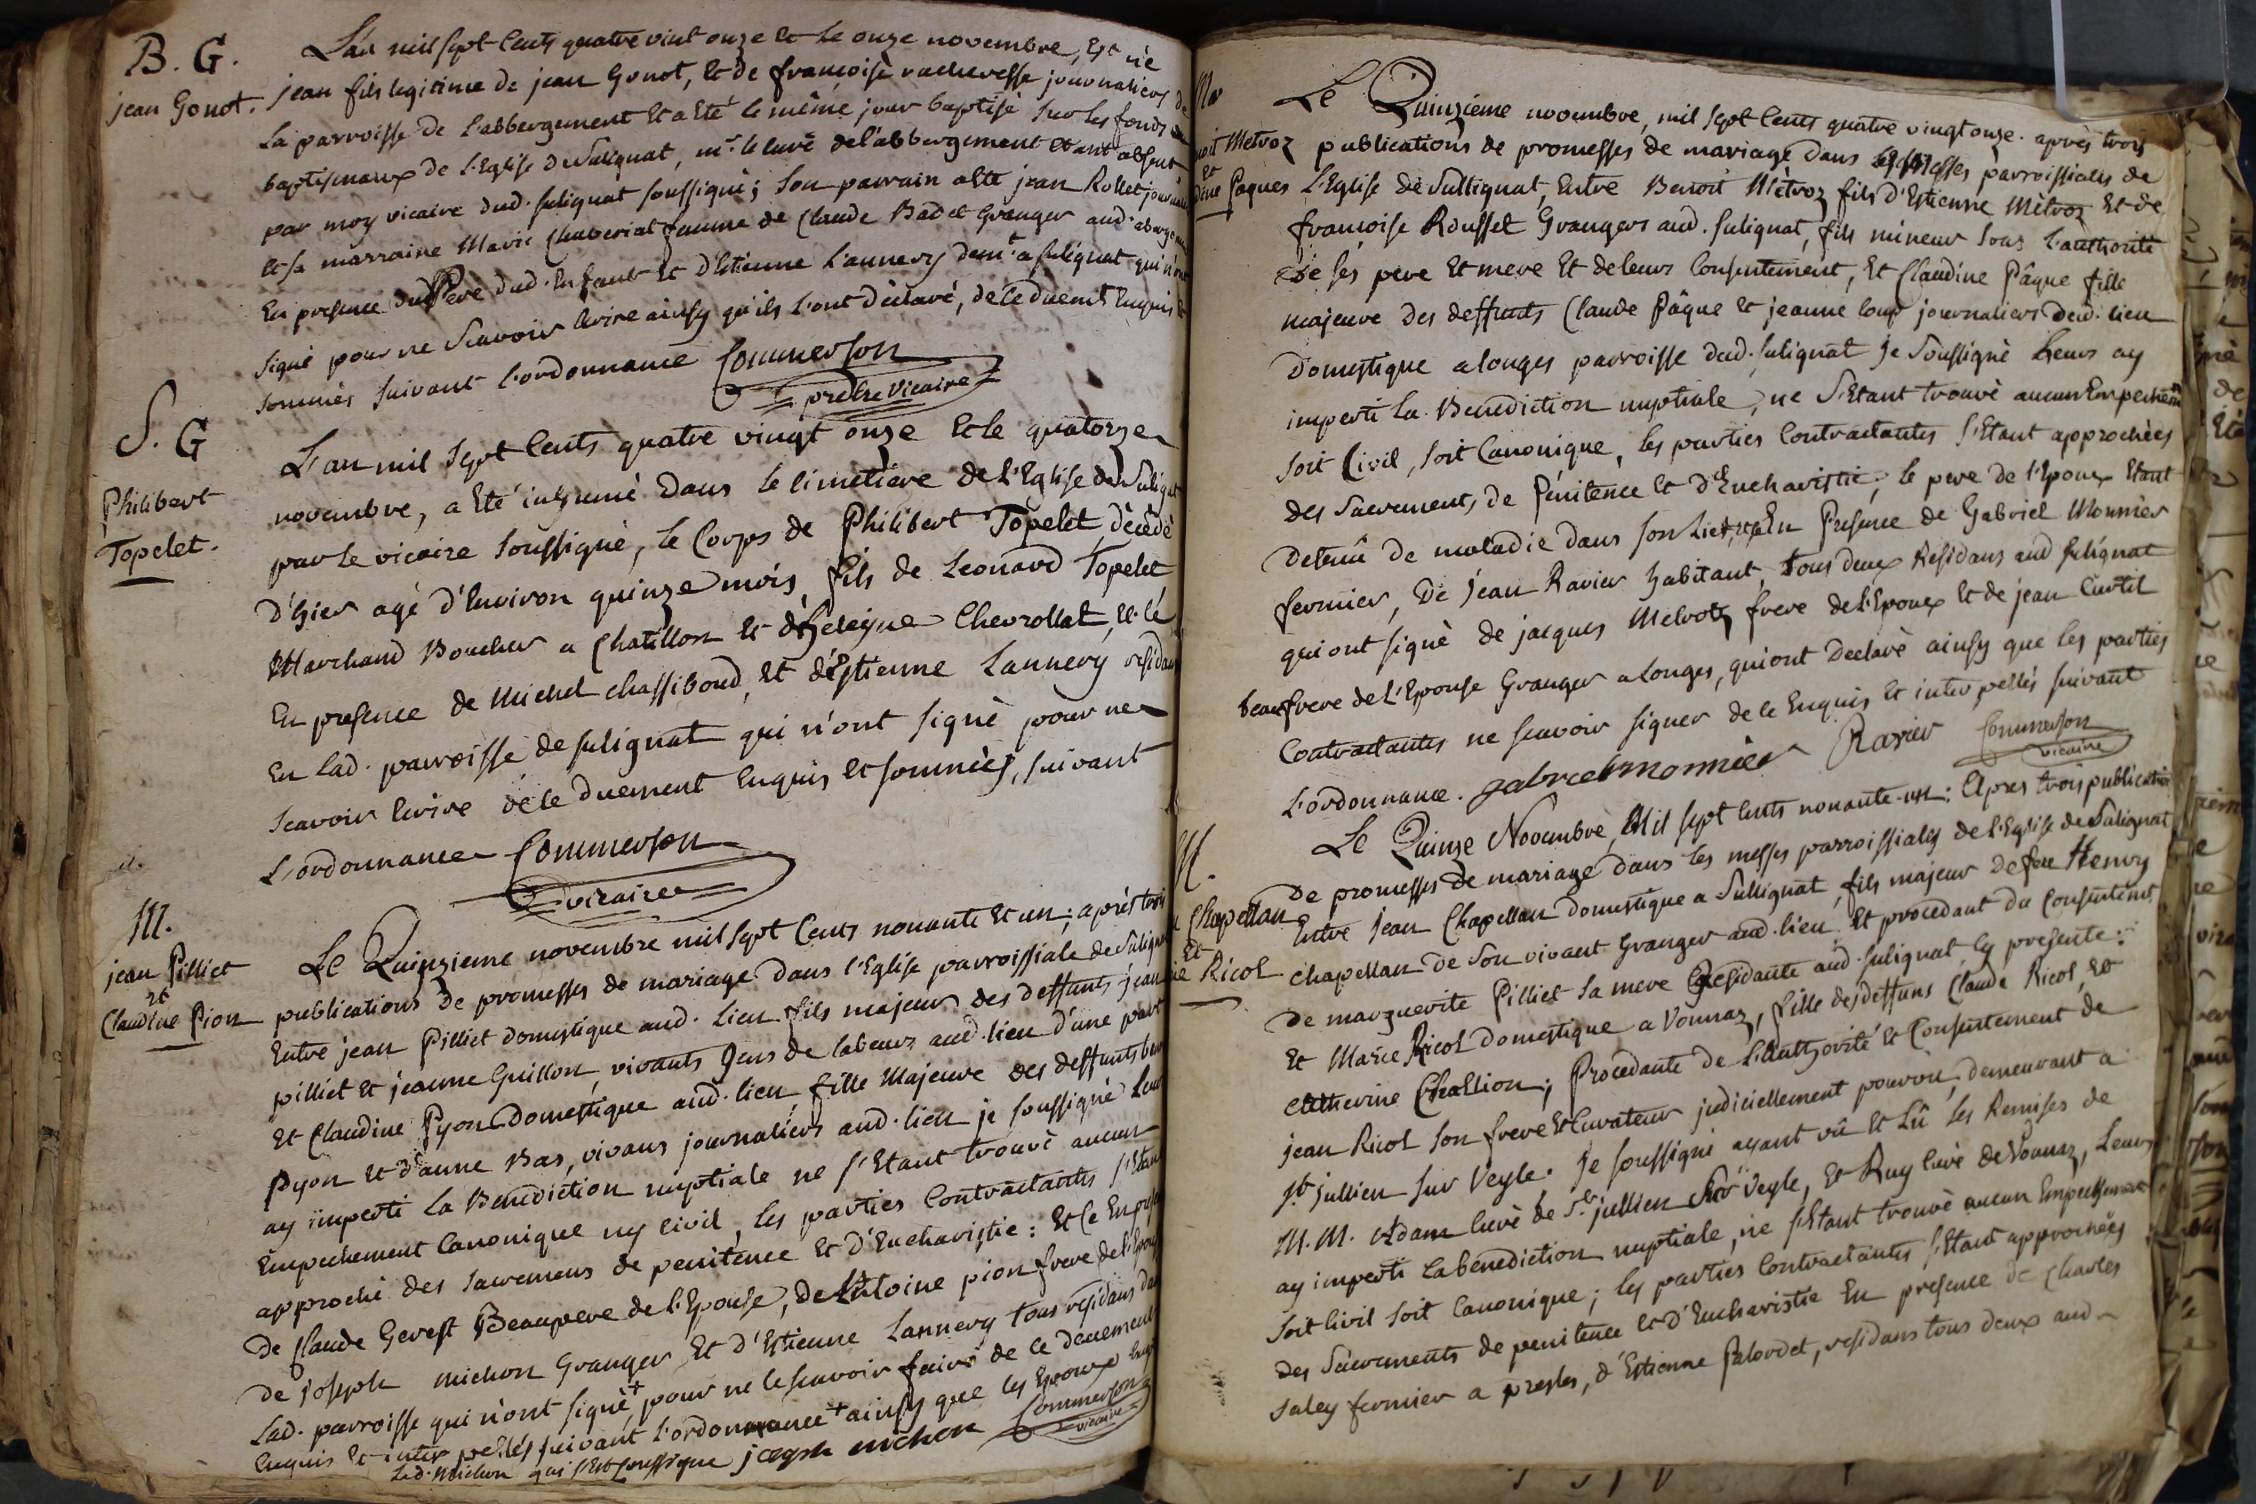 B. G.
jean Gonot.
L'an mil sept Cents quatre vint onze et le onze novembre, Est né
jean fils legitime de jean Gonot, et de françoise vacheresse journaliers de
la parroisse de L'abbergement et a Eté le même jour baptisé sur les fonds
baptismaux de l'Eglise de Sulignat, mr. le curé de l'abbergement étant absent
par moy vicaire dud. sulignat soussigné; son parrain a Eté jean Rollet journalie
et sa marraine Marie Chaveriat femme de Claude Badet Granger aud. aberge
En presence du Père dud. Enfant et d'Estienne Lannery demt. a sulignat qui n'ont
signé pour ne Scavoir Ecrire ainsy qu'ils l'ont Déclaré, de ce duemt Enquis et
sommés suivant l'ordonnance Commerson
prêtre vicaire
S. G
Philibert
Topelet.
L'an mil sept Cents quatre vingt onze et le quatorze
novembre, a Eté inhumé dans le cimetiere de l'Eglise de Sulignat
par le vicaire soussigné, le Corps de Philibert Topelet, décédé
d'hier agé d'Environ quinze mois, fils de Leonard Topelet
Marchand Boucher a Chatillon et d'heleyne Chevrollat, et ce
En presence de Michel chassiboud, et d'Estienne Lannery residans
En lad. parroisse de sulignat qui n'ont signé pour ne
scavoir Ecrire de ce duement Enquis et sommés, suivant
L'ordonnance Commerson
vicaire
M.
jean Pilliet
et
Claudine Pion
Le Quinzieme novembre mil sept Cents nonante et un; après trois
publications de promesses de mariage dans l'Eglise parroissiale de Sulignat
Entre jean Pilliet domestique aud. Lieu fils majeur des deffunts jean
pilliet et jeanne Guillon, vivants gens de labeur aud. lieu d'une part
Et Claudine Pyon domestique aud. lieu fille Majeure des deffunts
Pyon et d'anne Bas, vivans journaliers aud. lieu je soussigné Leur
ay imperti la Benediction nuptiale ne s'Etant trouvé aucun
Empechement Canonique ny civil, les parties Contractantes s'Etant
approché des sacremens de penitence et d'Eucharistie: et Ce En presence
De Claude Gerest Beaupere de l'Epouse, de Antoine pion frere de l'Epouse
de joseph michon Granger et d'Estienne Lannery tous residans dans
Lad. parroisse qui n'ont signé + pour ne le scavoir faire de ce deuement
Enquis et interpellés suivant l'ordonnance + ainsy que les Epoux
Lad. Michon qui s'Est soussigné joseph michon Commerson
vicaire
Mar
noit Metroz
et
dine Paques
Le Quinzieme novembre, mil sept Cents quatre vingt onze. après trois
publications de promesses de mariage dans les Messes parroissiales de
l'Eglise de Sullignat, Entre Benoit Métroz fils d'Estienne Métroz et de
françoise Rousset Grangers aud. sulignat, fils mineur sous l'authorité
De ses pere et mere et de leur Consentement, et Claudine Pâque fille
majeure des deffunts Claude Pâque et jeanne loup journaliers dud. lieu
Domestique a longes parroisse dud. sulignat je soussigné Leurs ay
imperti la Benediction nuptiale, ne s'Etant trouvé aucun Empechemt
soit Civil, soit Canonique, les parties Contractantes s'Etant approchées
des Sacrements de Pénitence et d'Eucharistie, le pere de l'Epoux Etant
Detenû de maladie dans son Lict, En Presence de Gabriel Monnier
fermier, De jean Ravier habitant, tous deux Residans aud sulignat
qui ont signé de jacques Metroz frere de l'Epoux et de jean Curtil
beaufrere de l'Epouse Granger a longes, qui ont Declaré ainsy que les parties
Contractantes ne scavoir signer de ce Enquis et interpellés suivant
L'ordonnance. gabriel monnier Ravier Commerson
vicaire
M.
Chapellan
Et
ie Ricol
Le Quinze Novembre, Mil sept Cents nonante-un: Apres trois publications
De promesses de mariage dans les messes parroissiales de l'Eglise de Salignat
Entre jean Chapellan Domestique a Sullignat, fils majeur de feu Henry
Chapellan de son vivant Granger aud. lieu et procedant du Consentemt
De marguerite Pilliet sa mere Residante aud. sulignat, cy presente:
Et Marie Ricol domestique a Vonnaz, fille des deffuns Claude Ricol, et
Catherine Chaltion; Procedante de l'Authorité et Consentement de
jean Ricol son frere et Curateur judiciellement pouvou, demeurant a
St. jullien sur Veyle. je soussigné ayant vû et Lû les Remises de
M. M. Adam curé de St. jullien sur Veyle, et Ruy curé de Vonnaz, Leurs
ay imperti la benediction nuptiale, ne s'Etant trouvé aucun Empechement
Soit Civil soit Canonique; les parties Contractantes s'Etant approchées
des Sacrements de penitence et d'Eucharistie En presence de Charles
saley fermier a presles, d'Estienne Palordet, residans tous deux aud